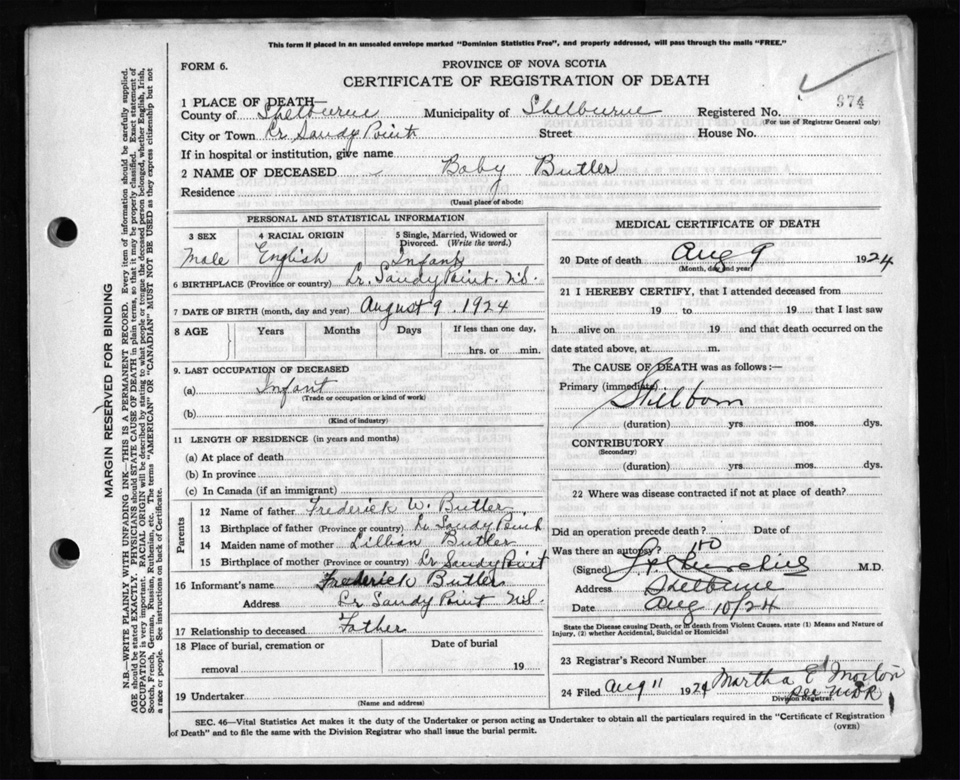 This form if placed in an unsealed envelope marked "Dominion Statistics Free", and properly addressed, will pass through the mails "FREE."
FORM 6.
PROVINCE OF NOVA SCOTIA
CERTIFICATE OF REGISTRATION OF DEATH
974
1 PLACE OF DEATH—
County of Shelburne Municipality of Shelburne Registered No.
(For use of Registrar General only)
City or Town Lr Sandy Point Street House No.
If in hospital or institution, give name
2 NAME OF DECEASED Baby Butler
Residence
(Usual place of abode)
PERSONAL AND STATISTICAL INFORMATION
3 SEX 4 RACIAL ORIGIN 5 Single, Married, Widowed or Divorced. (Write the word.)
Male English Infant
6 BIRTHPLACE (Province or country) Lr. Sandy Point. N.S.
7 DATE OF BIRTH (month, day and year) August 9. 1924
8 AGE Years Months Days If less than one day,
hrs. or min.
9. LAST OCCUPATION OF DECEASED
(a) Infant
(Trade or occupation or kind of work)
(b)
(Kind of industry)
11 LENGTH OF RESIDENCE (in years and months)
(a) At place of death
(b) In province
(c) In Canada (if an immigrant)
Parents
12 Name of father Frederick W. Butler
13 Birthplace of father (Province or country) Lr Sandy Point
14 Maiden name of mother Lillian Butler
15 Birthplace of mother (Province or country) Lr Sandy Point
16 Informant's name Frederick Butler
Address Lr Sandy Point N.S.
17 Relationship to deceased Father
18 Place of burial, cremation or Date of burial
removal 19
19 Undertaker
(Name and address)
MEDICAL CERTIFICATE OF DEATH
20 Date of death Aug 9 1924
(Month, day and year)
21 I HEREBY CERTIFY, that I attended deceased from
19 to 19 that I last saw
h alive on ,19 and that death occurred on the
date stated above, at m.
The CAUSE OF DEATH was as follows:—
Primary (immediate)
Stillborn
(duration) yrs mos. dys.
CONTRIBUTORY
(Secondary)
(duration) yrs. mos. dys.
22 Where was disease contracted if not at place of death?
Did an operation precede death? Date of
Was there an autopsy? no
(Signed) M.D.
Address Shelburne
Date Aug 10/24
State the Disease causing Death, or in death from Violent Causes, state (1) Means and Nature of
Injury, (2) whether Accidental, Suicidal or Homicidal
23 Registrar's Record Number
24 Filed Aug 11 1924 Martha E Morton
Division Registrar.
per MDR
SEC. 46—Vital Statistics Act makes it the duty of the Undertaker or person acting as Undertaker to obtain all the particulars required in the "Certificate of Registration
of Death" and to file the same with the Division Registrar who shall issue the burial permit.
(OVER)
MARGIN RESERVED FOR BINDING
N.B.—WRITE PLAINLY WITH UNFADING INK—THIS IS A PERMANENT RECORD. Every item of information should be carefully supplied.
AGE should be stated EXACTLY. PHYSICIANS should STATE CAUSE OF DEATH in plain terms, so that it may be properly classified. Exact statement of
OCCUPATION is very important. RACIAL ORIGIN will be described by stating to what people or tongue the deceased person belonged, whether English, Irish,
Scotch, French, German, Russian, Ruthenian, etc. The terms "AMERICAN" OR "CANADIAN" MUST NOT BE USED as they express citizenship but not
a race or people. See instructions on back of Certificate.